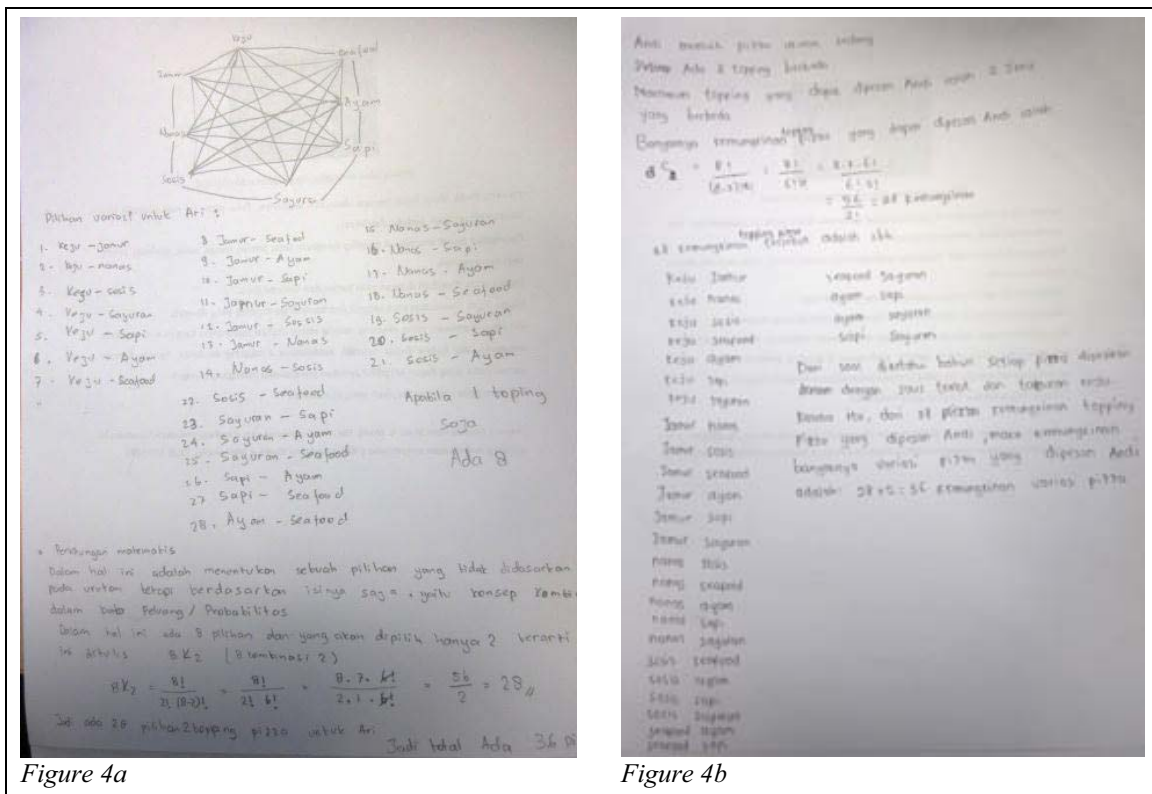 Keju
Seafood
Jamur
Ayam
Nanas
Sapi
Sosis
Sayuran
Pilihan variasi untuk Ari :
1. Keju - Jamur
2. Keju - nanas
3. Keju - sosis
4. Keju - Sayuran
5. Keju - Sapi
6. Keju - Ayam
7. Keju - Seafood
8. Jamur - Seafood
9. Jamur - Ayam
10. Jamur - Sapi
11. Jamur - Sayuran
12. Jamur - Sossis
13. Jamur - Nanas
14. Nanas - Sosis
15. Nanas - Sayuran
16. Nanas - Sapi
17. Nanas - Ayam
18. Nanas - Seafood
19. Sosis - Sayuran
20. Sosis - Sapi
21. Sosis - Ayam
22. Sosis - Seafood
23. Sayuran - Sapi
24. Sayuran - Ayam
25. Sayuran - Seafood
26. Sapi - Ayam
27. Sapi - Seafood
28. Ayam - Seafood
Apabila 1 toping
Saja
Ada 8
matematis
Dalam hal ini adalah menentukan sebuah pilihan yang tidak didasarkan
pada urutan tetapi berdasarkan isinya saja, yaitu konsep Kombi
dalam bab Peluang / Probabilitas
Dalam hal ini ada 8 pilihan dan yang akan dipilih hanya 2 berarti
ini ditulis 8K2 (8 kombinasi 2)
8K2 = 8! / 2! (8-2)! = 8! / 2! 6! = 8.7.6! / 2.1.6! = 56 / 2 = 28
Jadi ada 28 pilihan 2 topping pizza untuk Ari
Jadi total Ada 36 Pi
Figure 4a
Andi memilih pizza ukuran sedang
Ada 2 topping berbeda
topping yang dapat dipesan Andi adalah 2 jenis
yang berbeda
Banyaknya kemungkinan topping pizza yang dapat dipesan Andi ialah
8C2 = 8! / (8-2)!2! = 8! / 6!2! = 8.7.6! / 6!.2!
= 56 / 2! = 28 kemungkinan
28 kemungkinan topping pizza adalah
Keju Jamur
Keju nanas
Keju sosis
Keju seafood
Keju ayam
Keju sapi
Keju sayuran
Jamur nanas
Jamur sosis
Jamur seafood
Jamur ayam
Jamur sapi
Jamur sayuran
nanas sosis
nanas seafood
nanas ayam
nanas sapi
nanas sayuran
sosis seafood
sosis ayam
sosis sapi
sosis sayuran
seafood ayam
seafood sapi
seafood sayuran
ayam sapi
ayam sayuran
sapi sayuran
Dari soal diketahui bahwa setiap pizza disajikan
dengan saus tomat dan taburan keju.
Karena itu, dari 28 pizza kemungkinan topping
Pizza yang dipesan Andi, maka kemungkinan
banyaknya variasi pizza yang dipesan Andi
adalah 28+ = 56 kemungkinan variasi pizza
Figure 4b